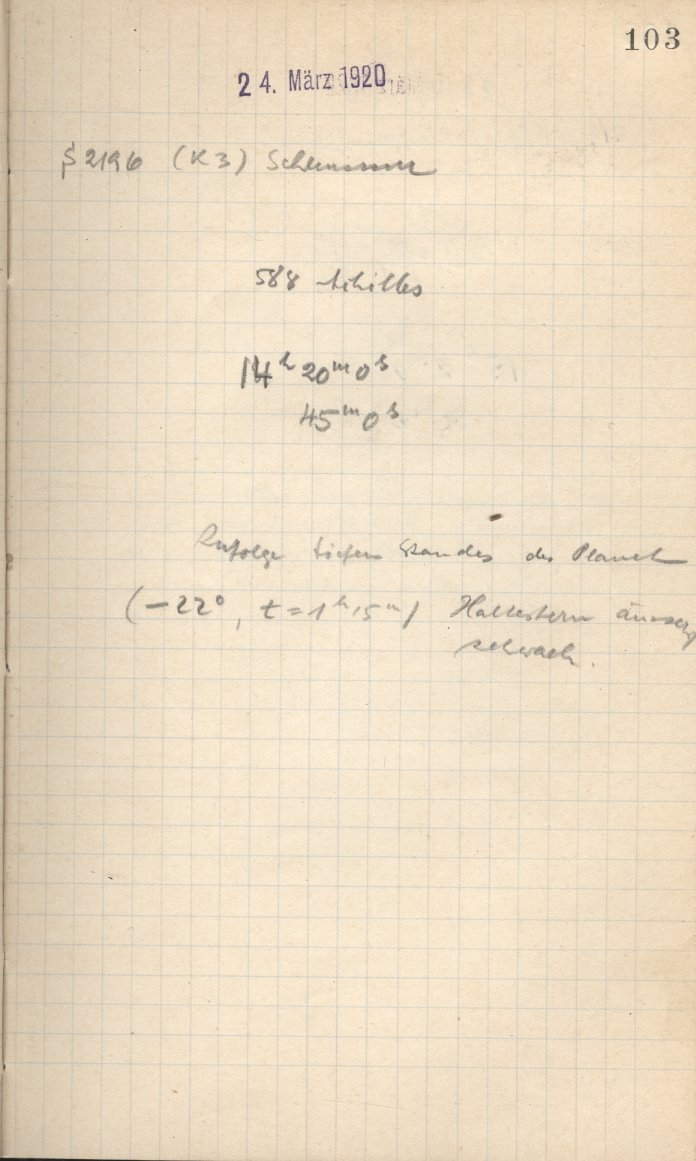 103
24. März 1920
§ 2196 (K3) Schleussner
588 Achilles
14 h 20 m 0 s
45 m 0 s
Infolge tiefen Standes des Planet
(-22°, t = 1 h 15 m) Haltestern äusserst
schwach.